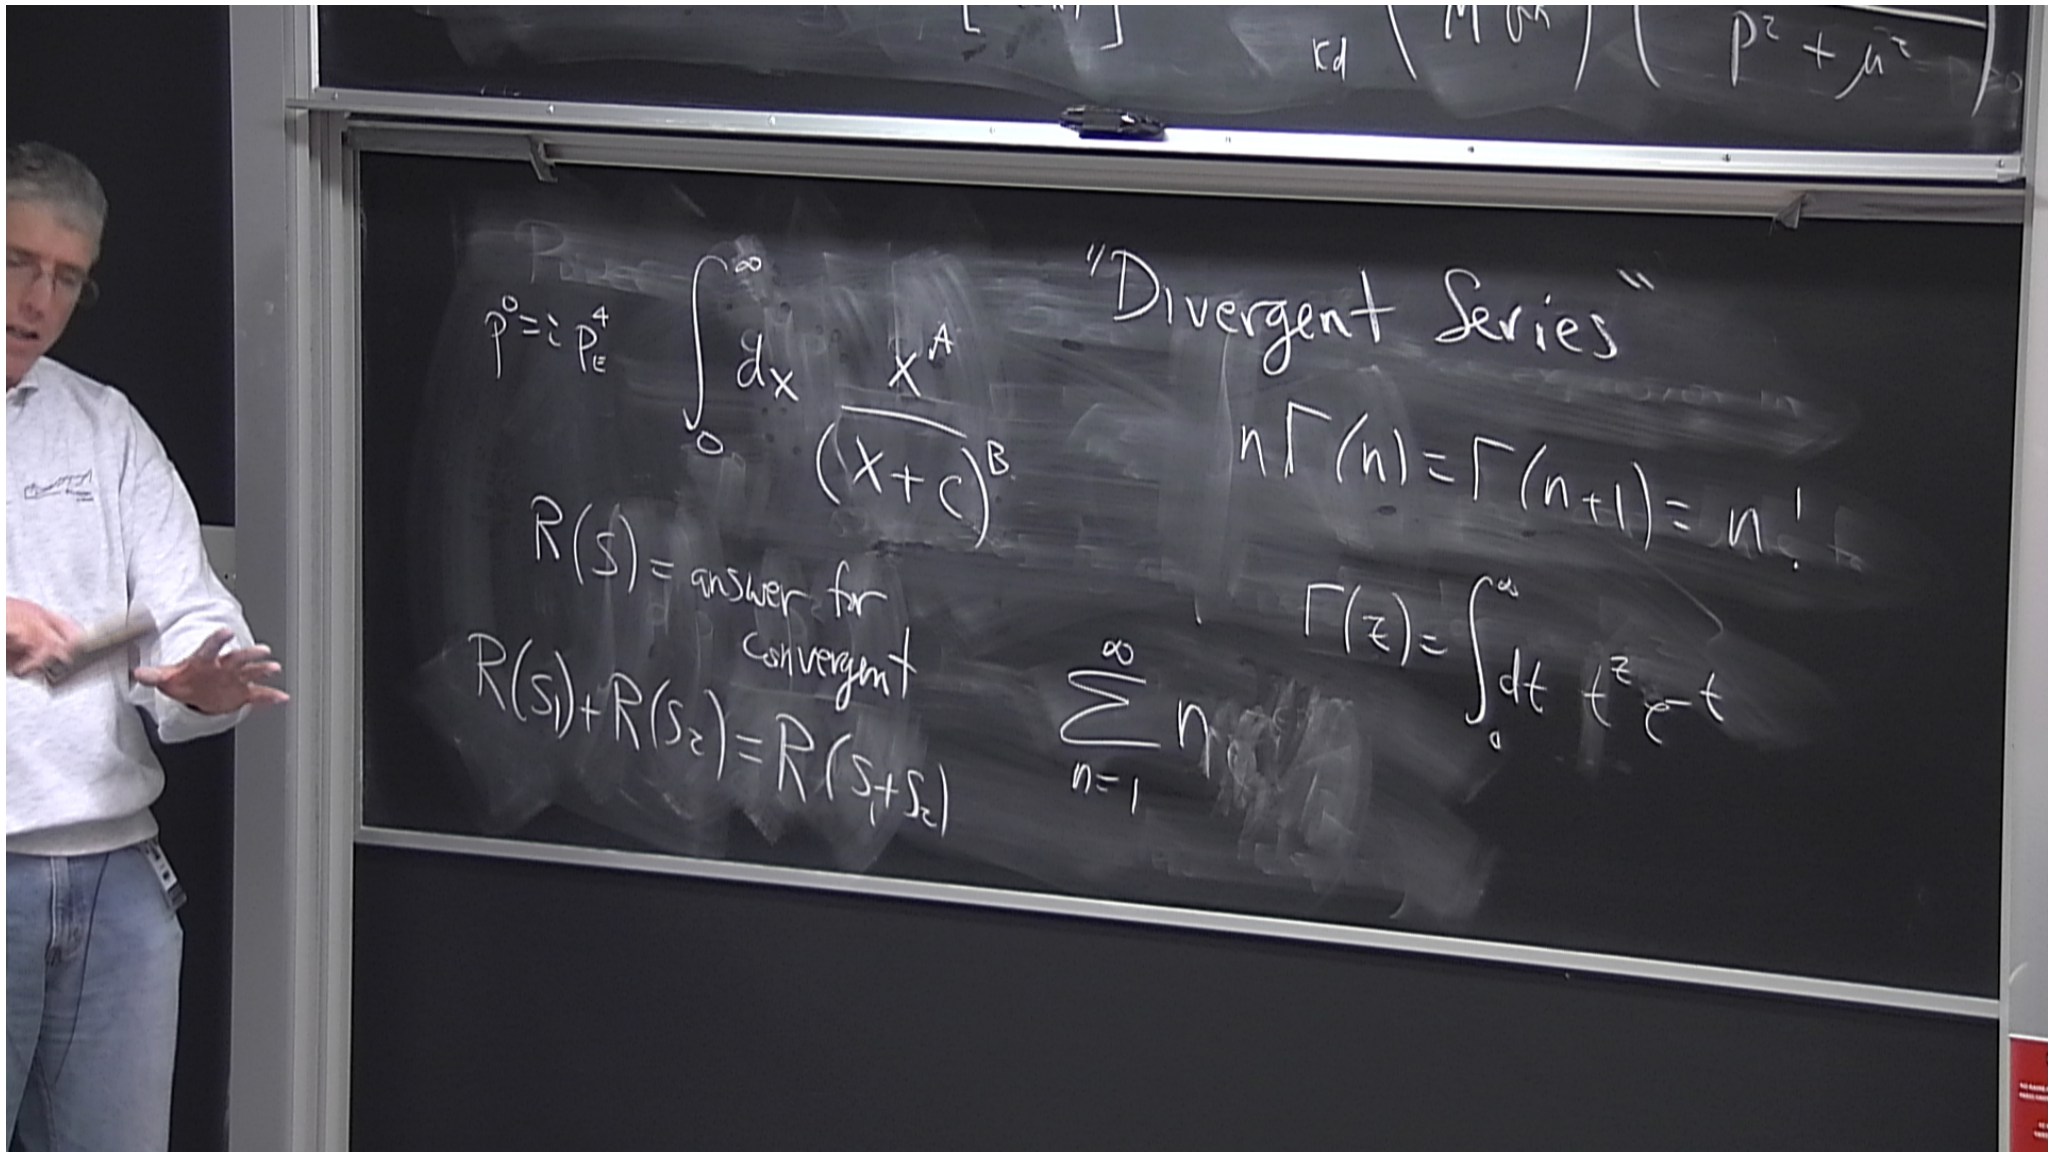 Kd
P² + μ²
p⁰ = i p_E⁴
∫₀^∞ dx x^A / (x + c)^B
R(s) = answer for
convergent
R(s₁) + R(s₂) = R(s₁ + s₂)
"Divergent Series"
n Γ(n) = Γ(n+1) = n!
Γ(z) = ∫₀^∞ dt t^z e^-t
∞
∑ n
n=1